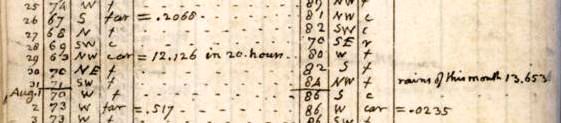 25 74 W f 87 NW f
26 67 S far = .2068. 81 NW c
27 68 N f 82 SW c
28 69 SW c 70 SE r
29 63 NW car = 12.126 in 20. hours. 80 W f
30 70 NE f 82 S f
31 71 SW f 84 NW f rains of this month 13.653
Aug. 1 70 W f 86 S c
2 73 W far = .517 86 W car = .0235
3 73 W f 86 SW f